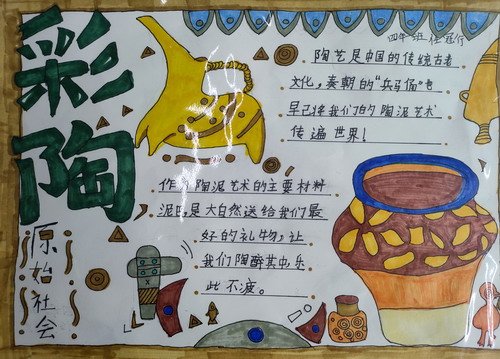 彩陶
四年 班
陶艺是中国的传统古老
文化,秦朝的“兵马俑”也
早已将我们的陶泥艺术
传遍世界!
作为陶泥艺术的主要材料
泥巴是大自然送给我们最
好的礼物,让
我们陶醉其中,乐
此不疲。
原始社会